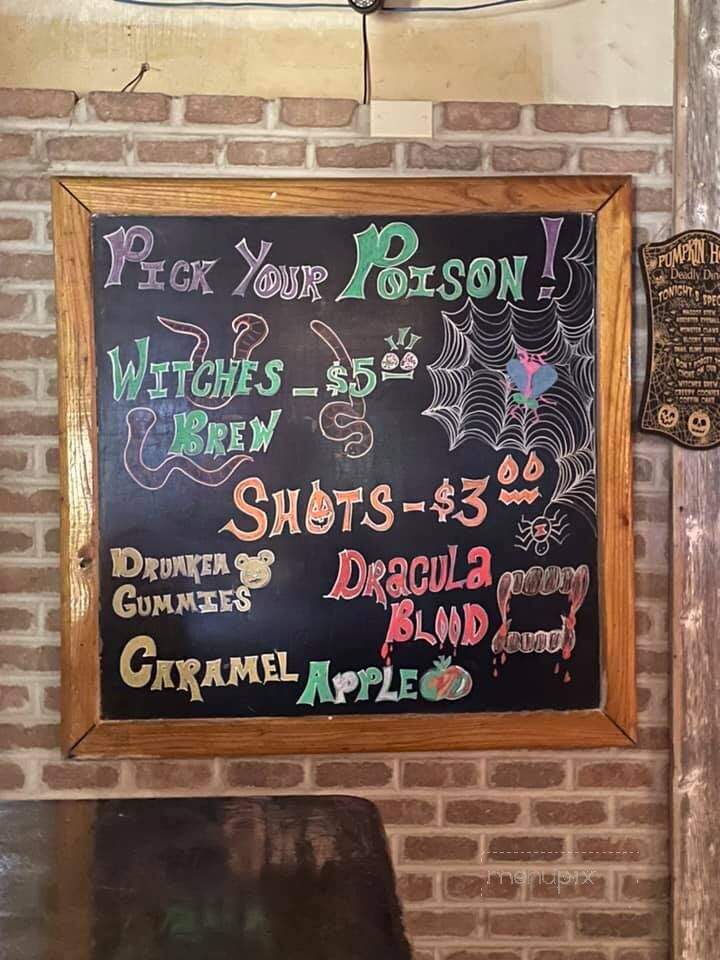 Pick Your Poison!
Witches - $5 00
Brew
Shots - $3 00
Drunken
Gummies
Dracula
Blood
Caramel Apple
Pumpkin Ho
Deadly Din
Tonight's Spe
menupix